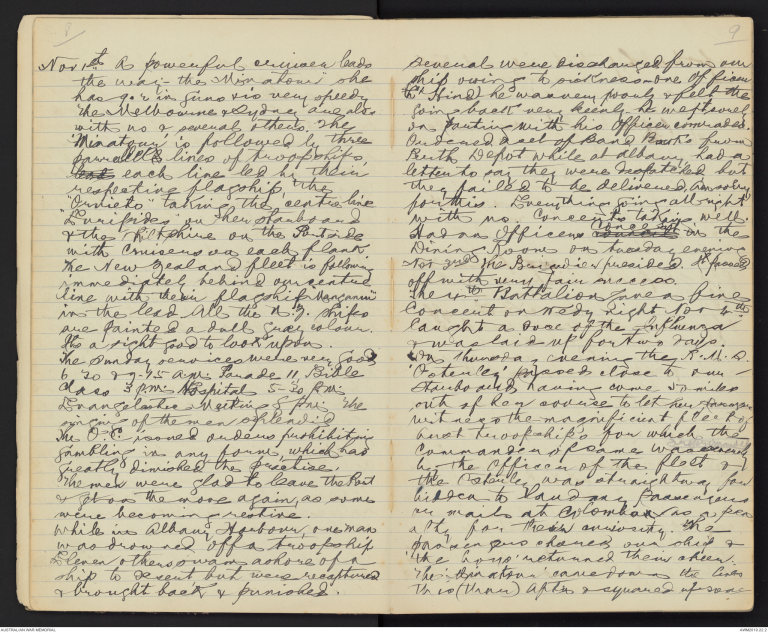 8
Nov 1st A powerful cruiser leads
the way – the "Minatour" she
has 9.2 in guns & is very speedy
The Melbourne & Sydney are also
with us & several others. The
Minatour is followed by three
parrallell lines of troopships
each line led by their
respective flagship, the
"Orvieto" taking the centre line
"Euripides" on her starboard
& the Wiltshire on the Portside
with cruisers on each flank.
The New Zealand fleet is following
immediately behind our central
line with their flagship Maunganui
in the lead All the N.Z. ships
are painted a dull gray colour.
Its a sight good to look upon.
The Sunday services were very good
6.30 & 9.15 a.m. Parade 11 Bible
Class 3 p.m. Hospital 5-30 p.m.
Evangelistic Meeting 8 p.m. The
singing of the men splendid
The O.C. issued orders prohibiting
gambling in any form, which has
greatly diminished the practise.
The men were glad to leave the Port
& get on the move again, as some
were becoming restive.
While in Albany Harbour, one man
was drowned off a troopship
Eleven others swam ashore off a
ship to desert but were recaptured
& brought back & punished.
9
Several were discharged from our
ship owing to sickness – one Officer
Lt Hind he was very poorly & felt the
going back very keenly he wept sorely
on parting with his Officer comrades.
Ordered a set of Band Books from
Perth Depot while at Albany, had a
letter to say they were despatched but
they failed to be delivered, am sorry
for this. Everything going all right
with us. Concerts taking well.
Had an Officers Concert in the
Dining Room on Tuesday evening
Nov 3rd The Brigadier presided. It passed
off with very fair success.
The 4th Battalion gave a fine
Concert on Wedy Night Nov 4th
Caught a dose of the Influenza
& was laid up for two days.
On Thursday evening the R.M.S.
"Osterley" passed close to our
Starboard having come 50 miles
out of her course to let her passengers
witness the magnificient fleet of
troopships for which the
Commander of same was
by the Officer of the fleet &
the Osterley was straightway for
bidden to land any passengers
or mails at Colombo as a pen
alty for their curiosity. The
passengers cheered our ship &
the boys returned their cheer.
The Minatour came down the lines
to us (Thurs) After & squared up some
AUSTRALIAN WAR MEMORIAL